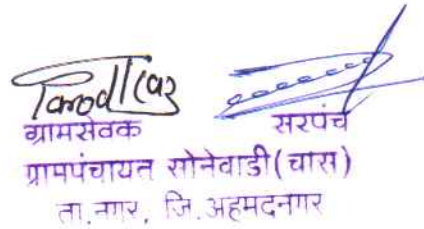 ग्रामसेवक सरपंच
ग्रामपंचायत सोनेवाडी(चास)
ता.नगर, जि.अहमदनगर